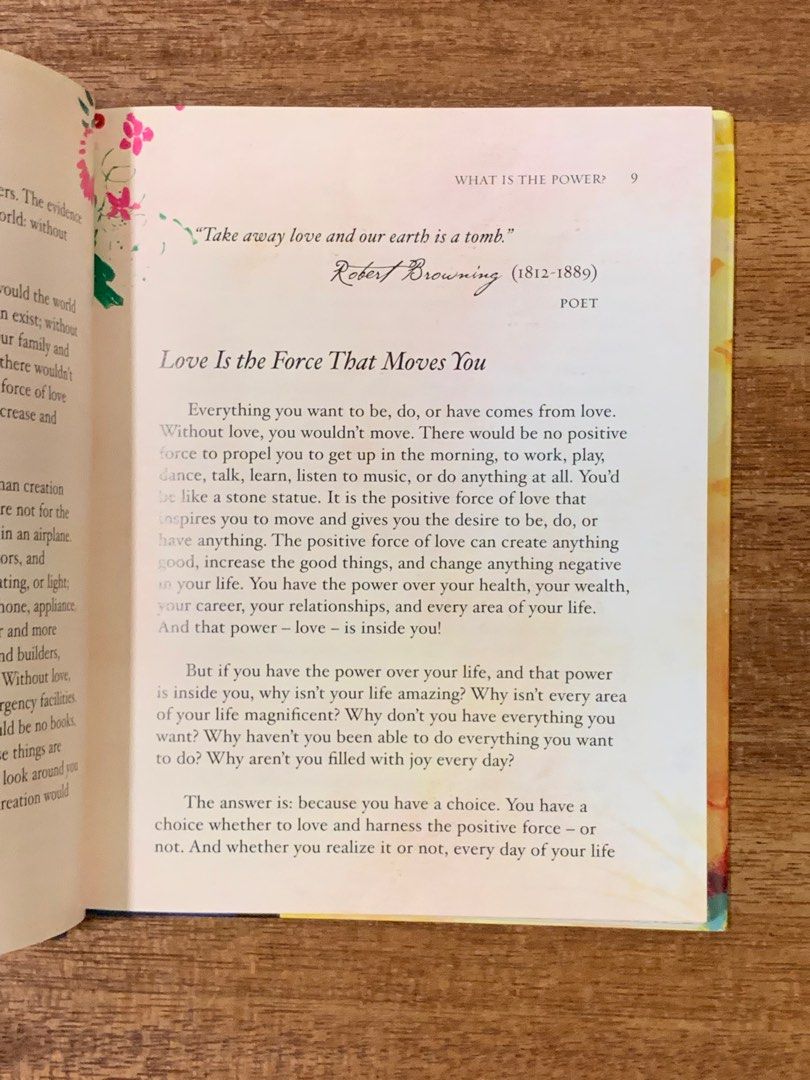 ers. The evidence
orld: without
vould the world
n exist; without
ur family and
there wouldn't
force of love
crease and
nan creation
re not for the
in an airplane.
ors, and
ating, or light;
hone, appliance,
r and more
nd builders,
Without love,
rgency facilities.
uld be no books,
se things are
look around you
reation would
WHAT IS THE POWER? 9
"Take away love and our earth is a tomb."
Robert Browning (1812-1889)
POET
Love Is the Force That Moves You
Everything you want to be, do, or have comes from love.
Without love, you wouldn't move. There would be no positive
force to propel you to get up in the morning, to work, play,
dance, talk, learn, listen to music, or do anything at all. You'd
be like a stone statue. It is the positive force of love that
inspires you to move and gives you the desire to be, do, or
have anything. The positive force of love can create anything
good, increase the good things, and change anything negative
in your life. You have the power over your health, your wealth,
your career, your relationships, and every area of your life.
And that power – love – is inside you!
But if you have the power over your life, and that power
is inside you, why isn't your life amazing? Why isn't every area
of your life magnificent? Why don't you have everything you
want? Why haven't you been able to do everything you want
to do? Why aren't you filled with joy every day?
The answer is: because you have a choice. You have a
choice whether to love and harness the positive force – or
not. And whether you realize it or not, every day of your life